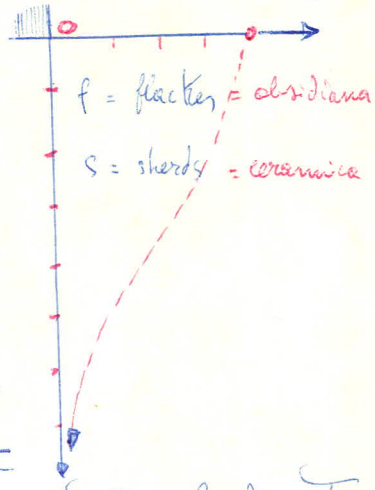 O
f = flackes = obsidiana
s = sherds = ceramica